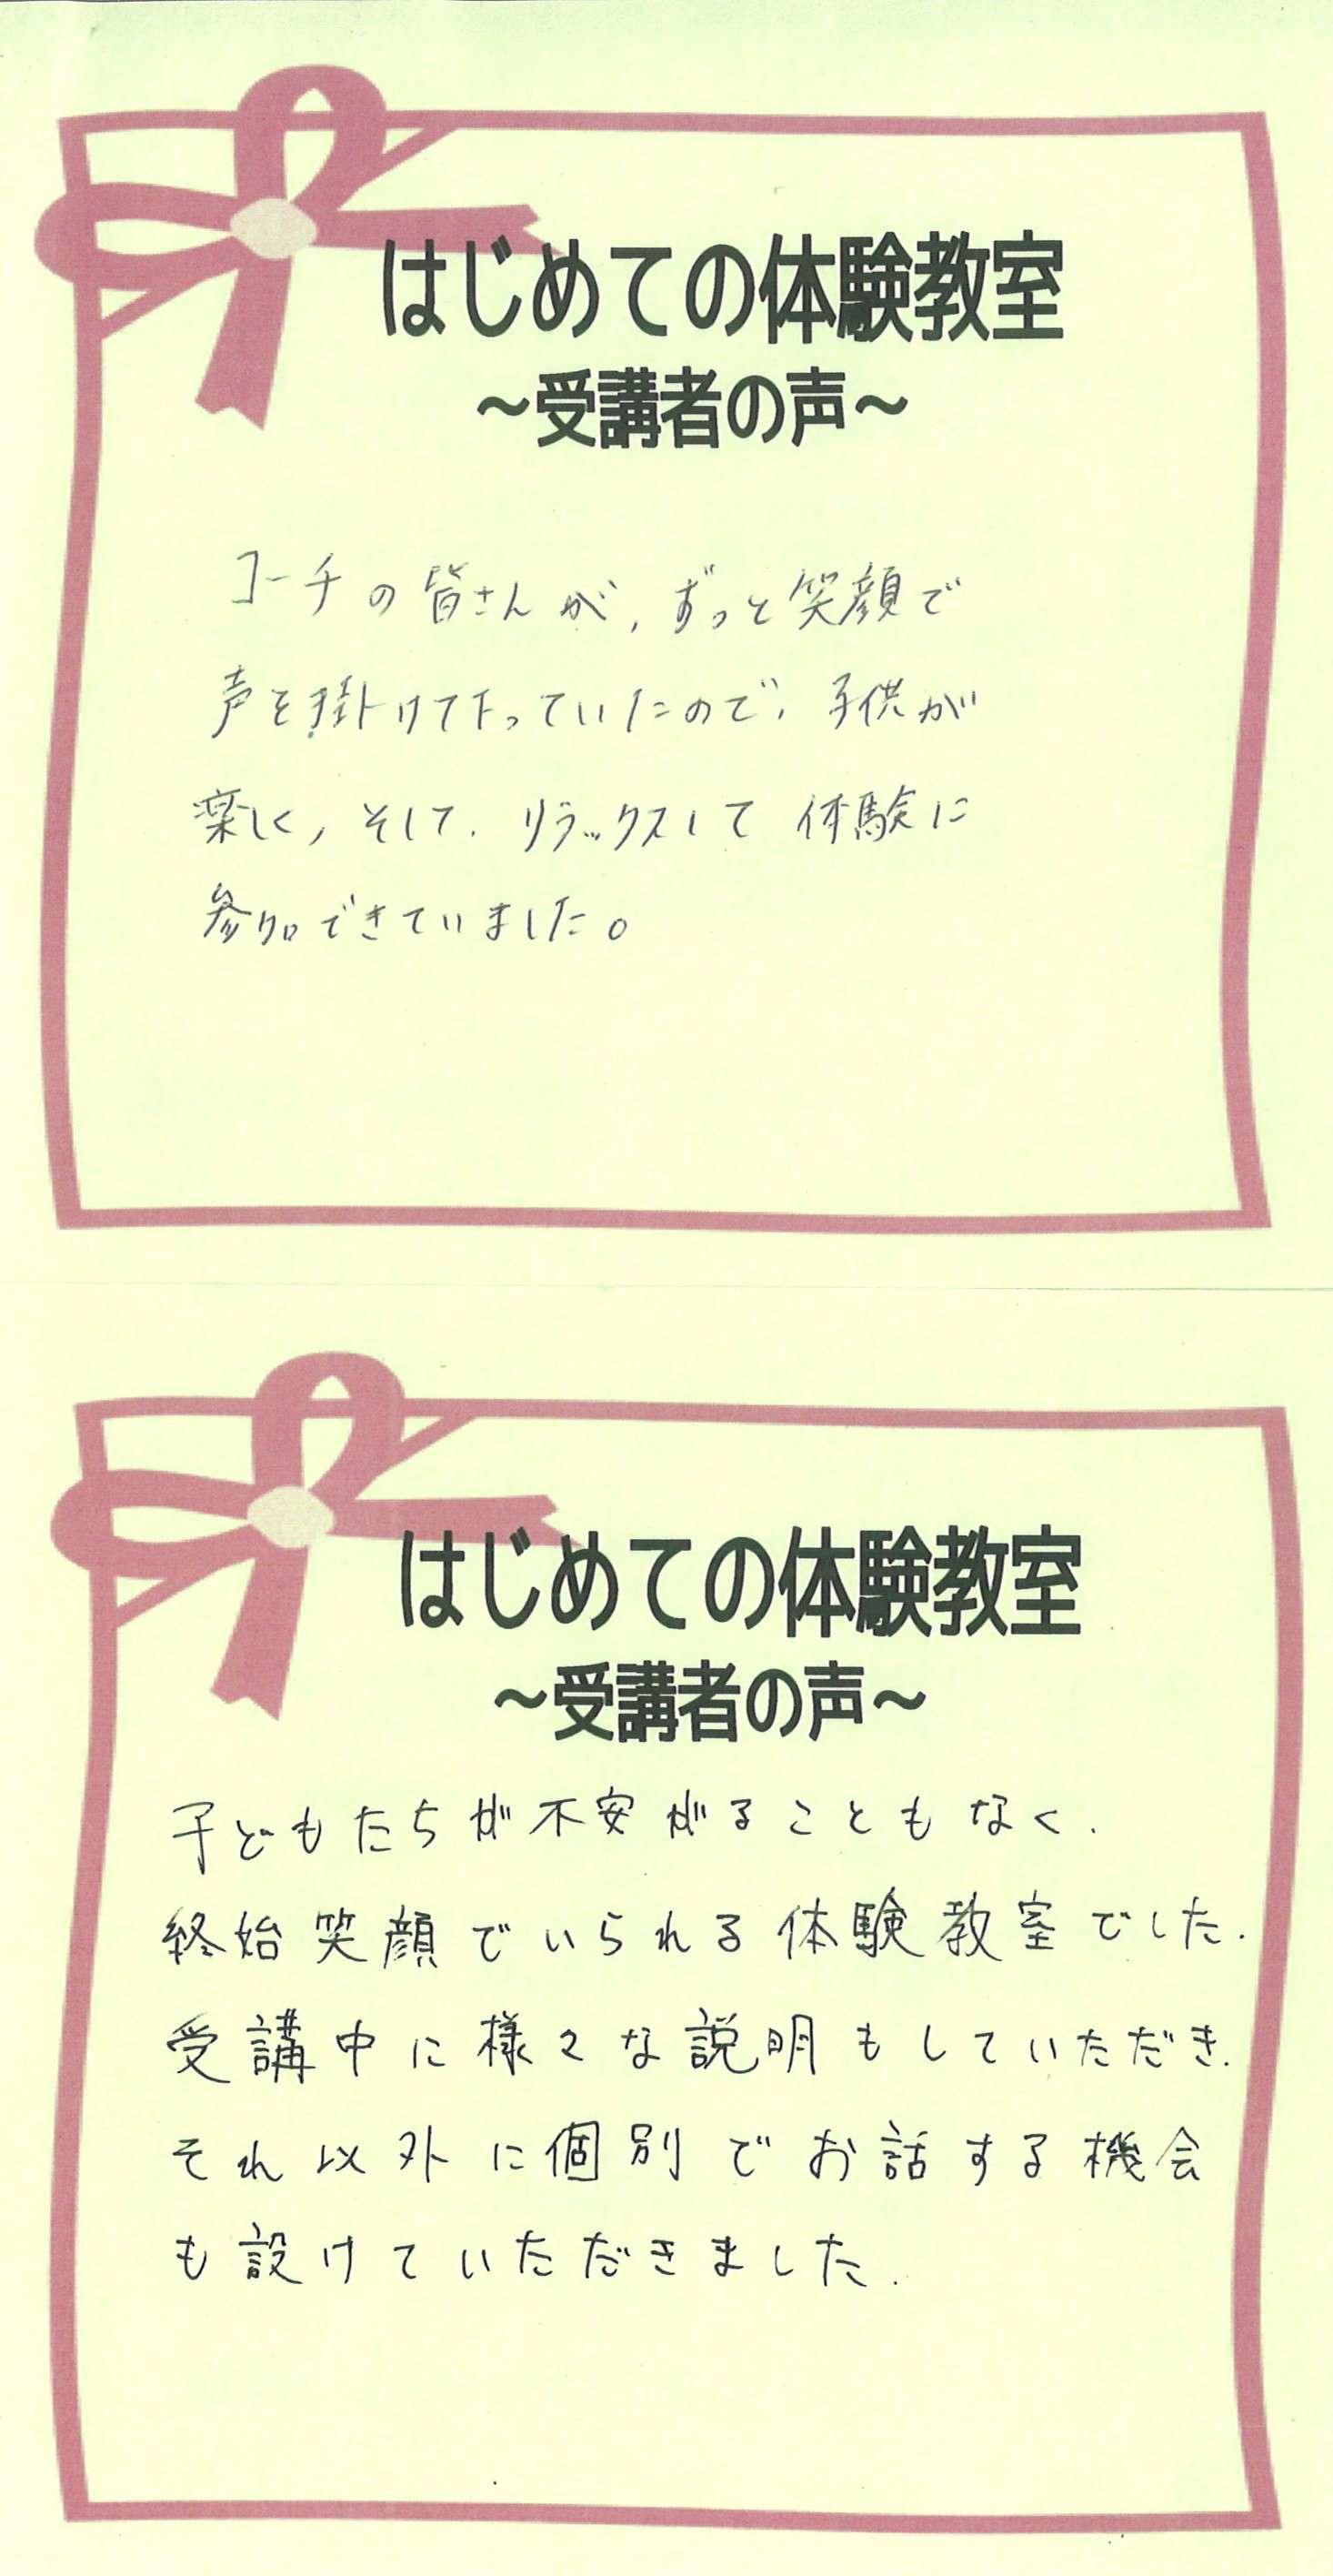 はじめての体験教室
～受講者の声～
コーチの皆さんが、ずっと笑顔で
声を掛けて下っていたので、子供が
楽しく、そして、リラックスして体験に
参加できていました。
はじめての体験教室
～受講者の声～
子どもたちが不安がることもなく、
終始笑顔でいられる体験教室でした.
受講中に様々な説明もしていただき、
それ以外に個別でお話する機会
も設けていただきました.